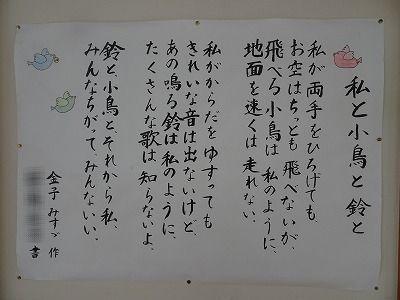 私と小鳥と鈴と
私が両手をひろげても、
お空はちっとも飛べないが、
飛べる小鳥は私のように、
地面を速くは走れない。
私がからだをゆすっても
きれいな音は出ないけど、
あの鳴る鈴は私のように、
たくさんな歌は知らないよ、
鈴と、小鳥と、それから私、
みんなちがって、みんないい、
金子みすゞ 作
書